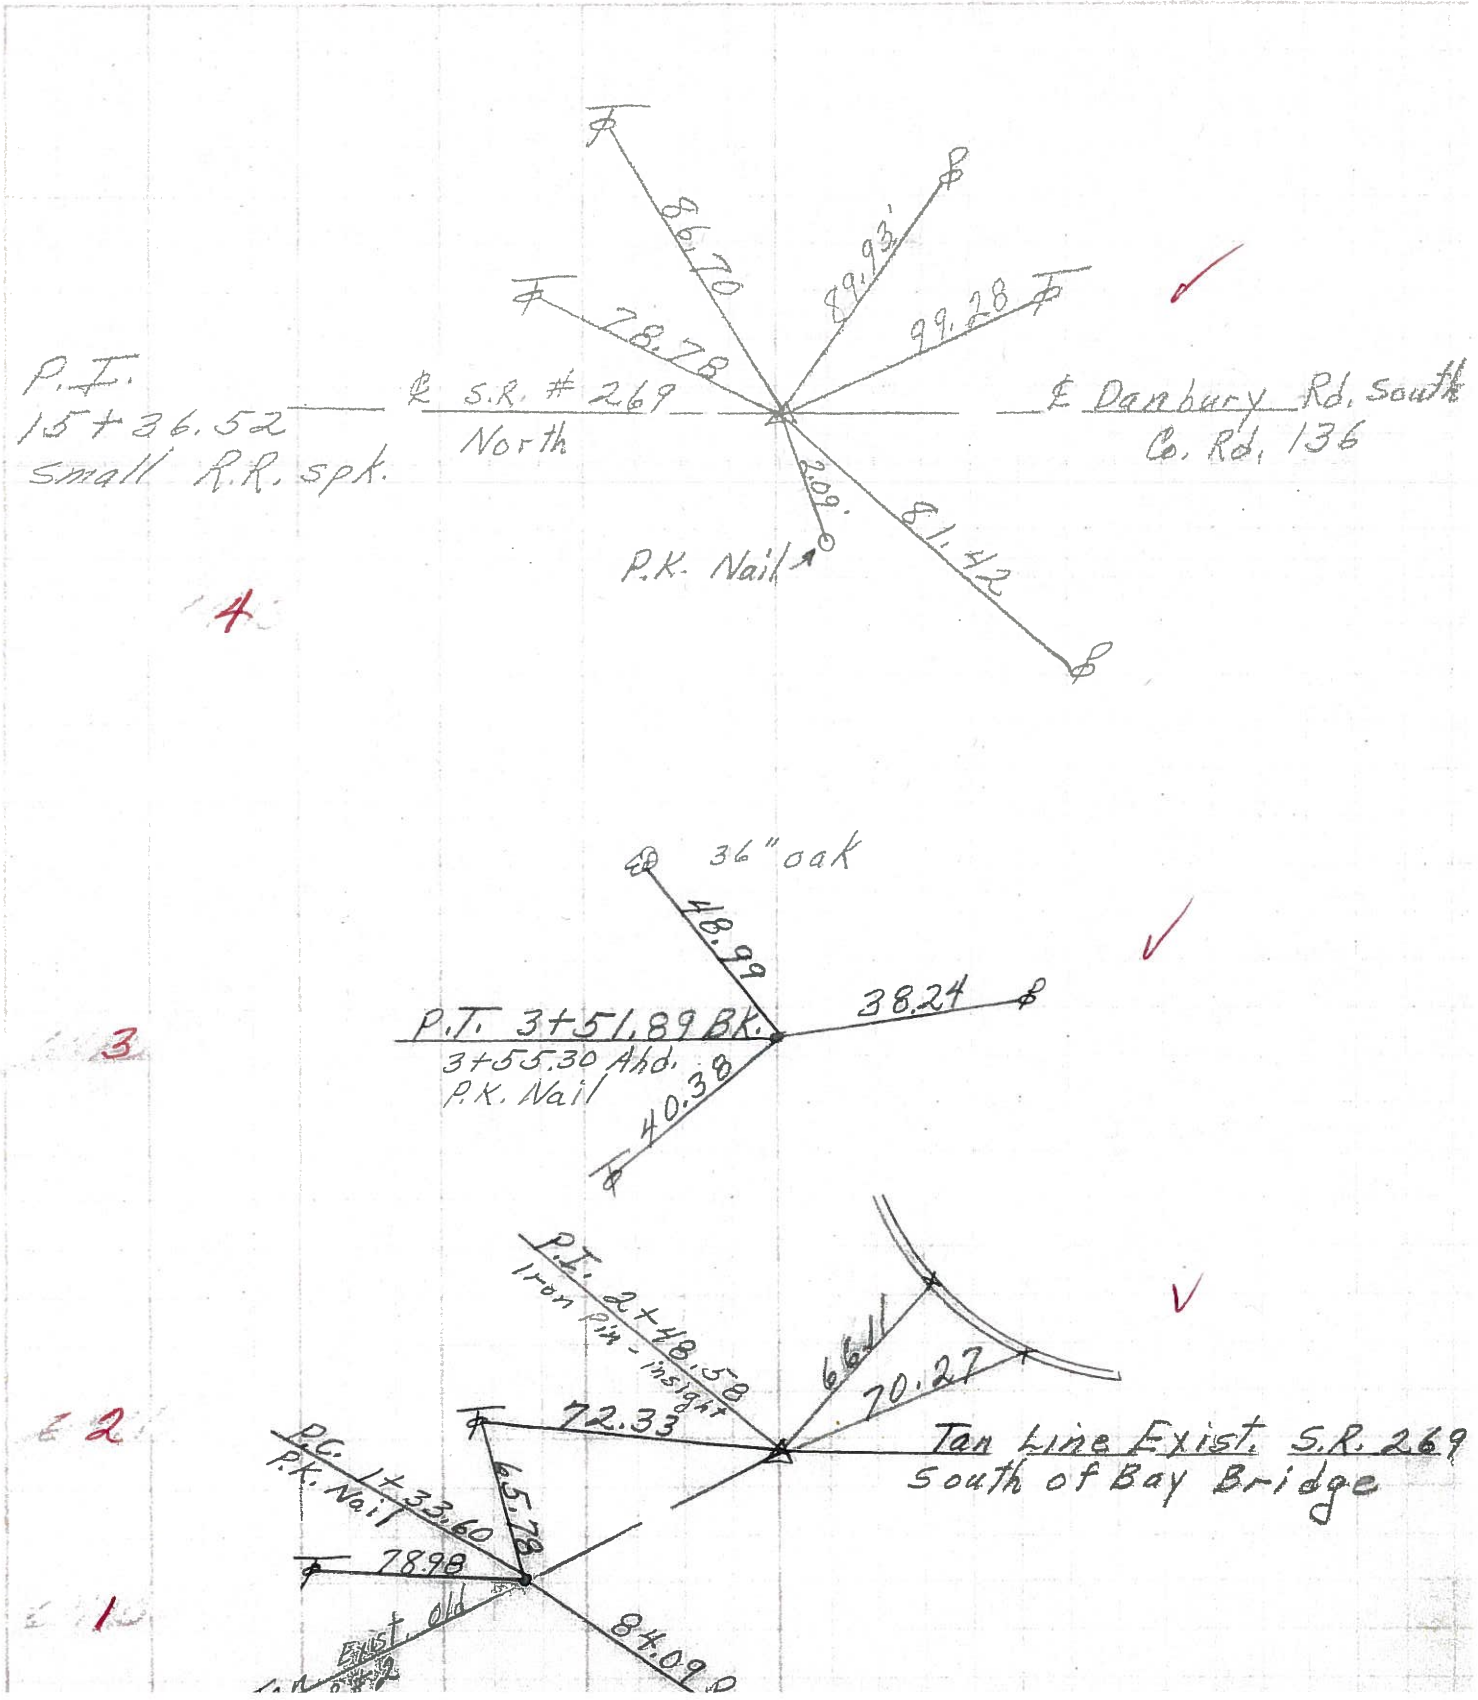 86.70
89.93'
78.78
99.28
P.I.
15+36.52
Small R.R. spk.
℄ S.R. # 269
North
℄ Danbury Rd. South
Co. Rd. 136
2.09
81.42
P.K. Nail
4
36" oak
48.99
38.24
P.T. 3+51.89 BK.
3+55.30 Ahd.
P.K. Nail
40.38
3
P.I. 2+48.58
Iron Pin - insight
66.11
70.27
72.33
2
Tan Line Exist. S.R. 269
South of Bay Bridge
P.C. 1+33.60
P.K. Nail
65.78
78.98
1
Exist. Old
84.09